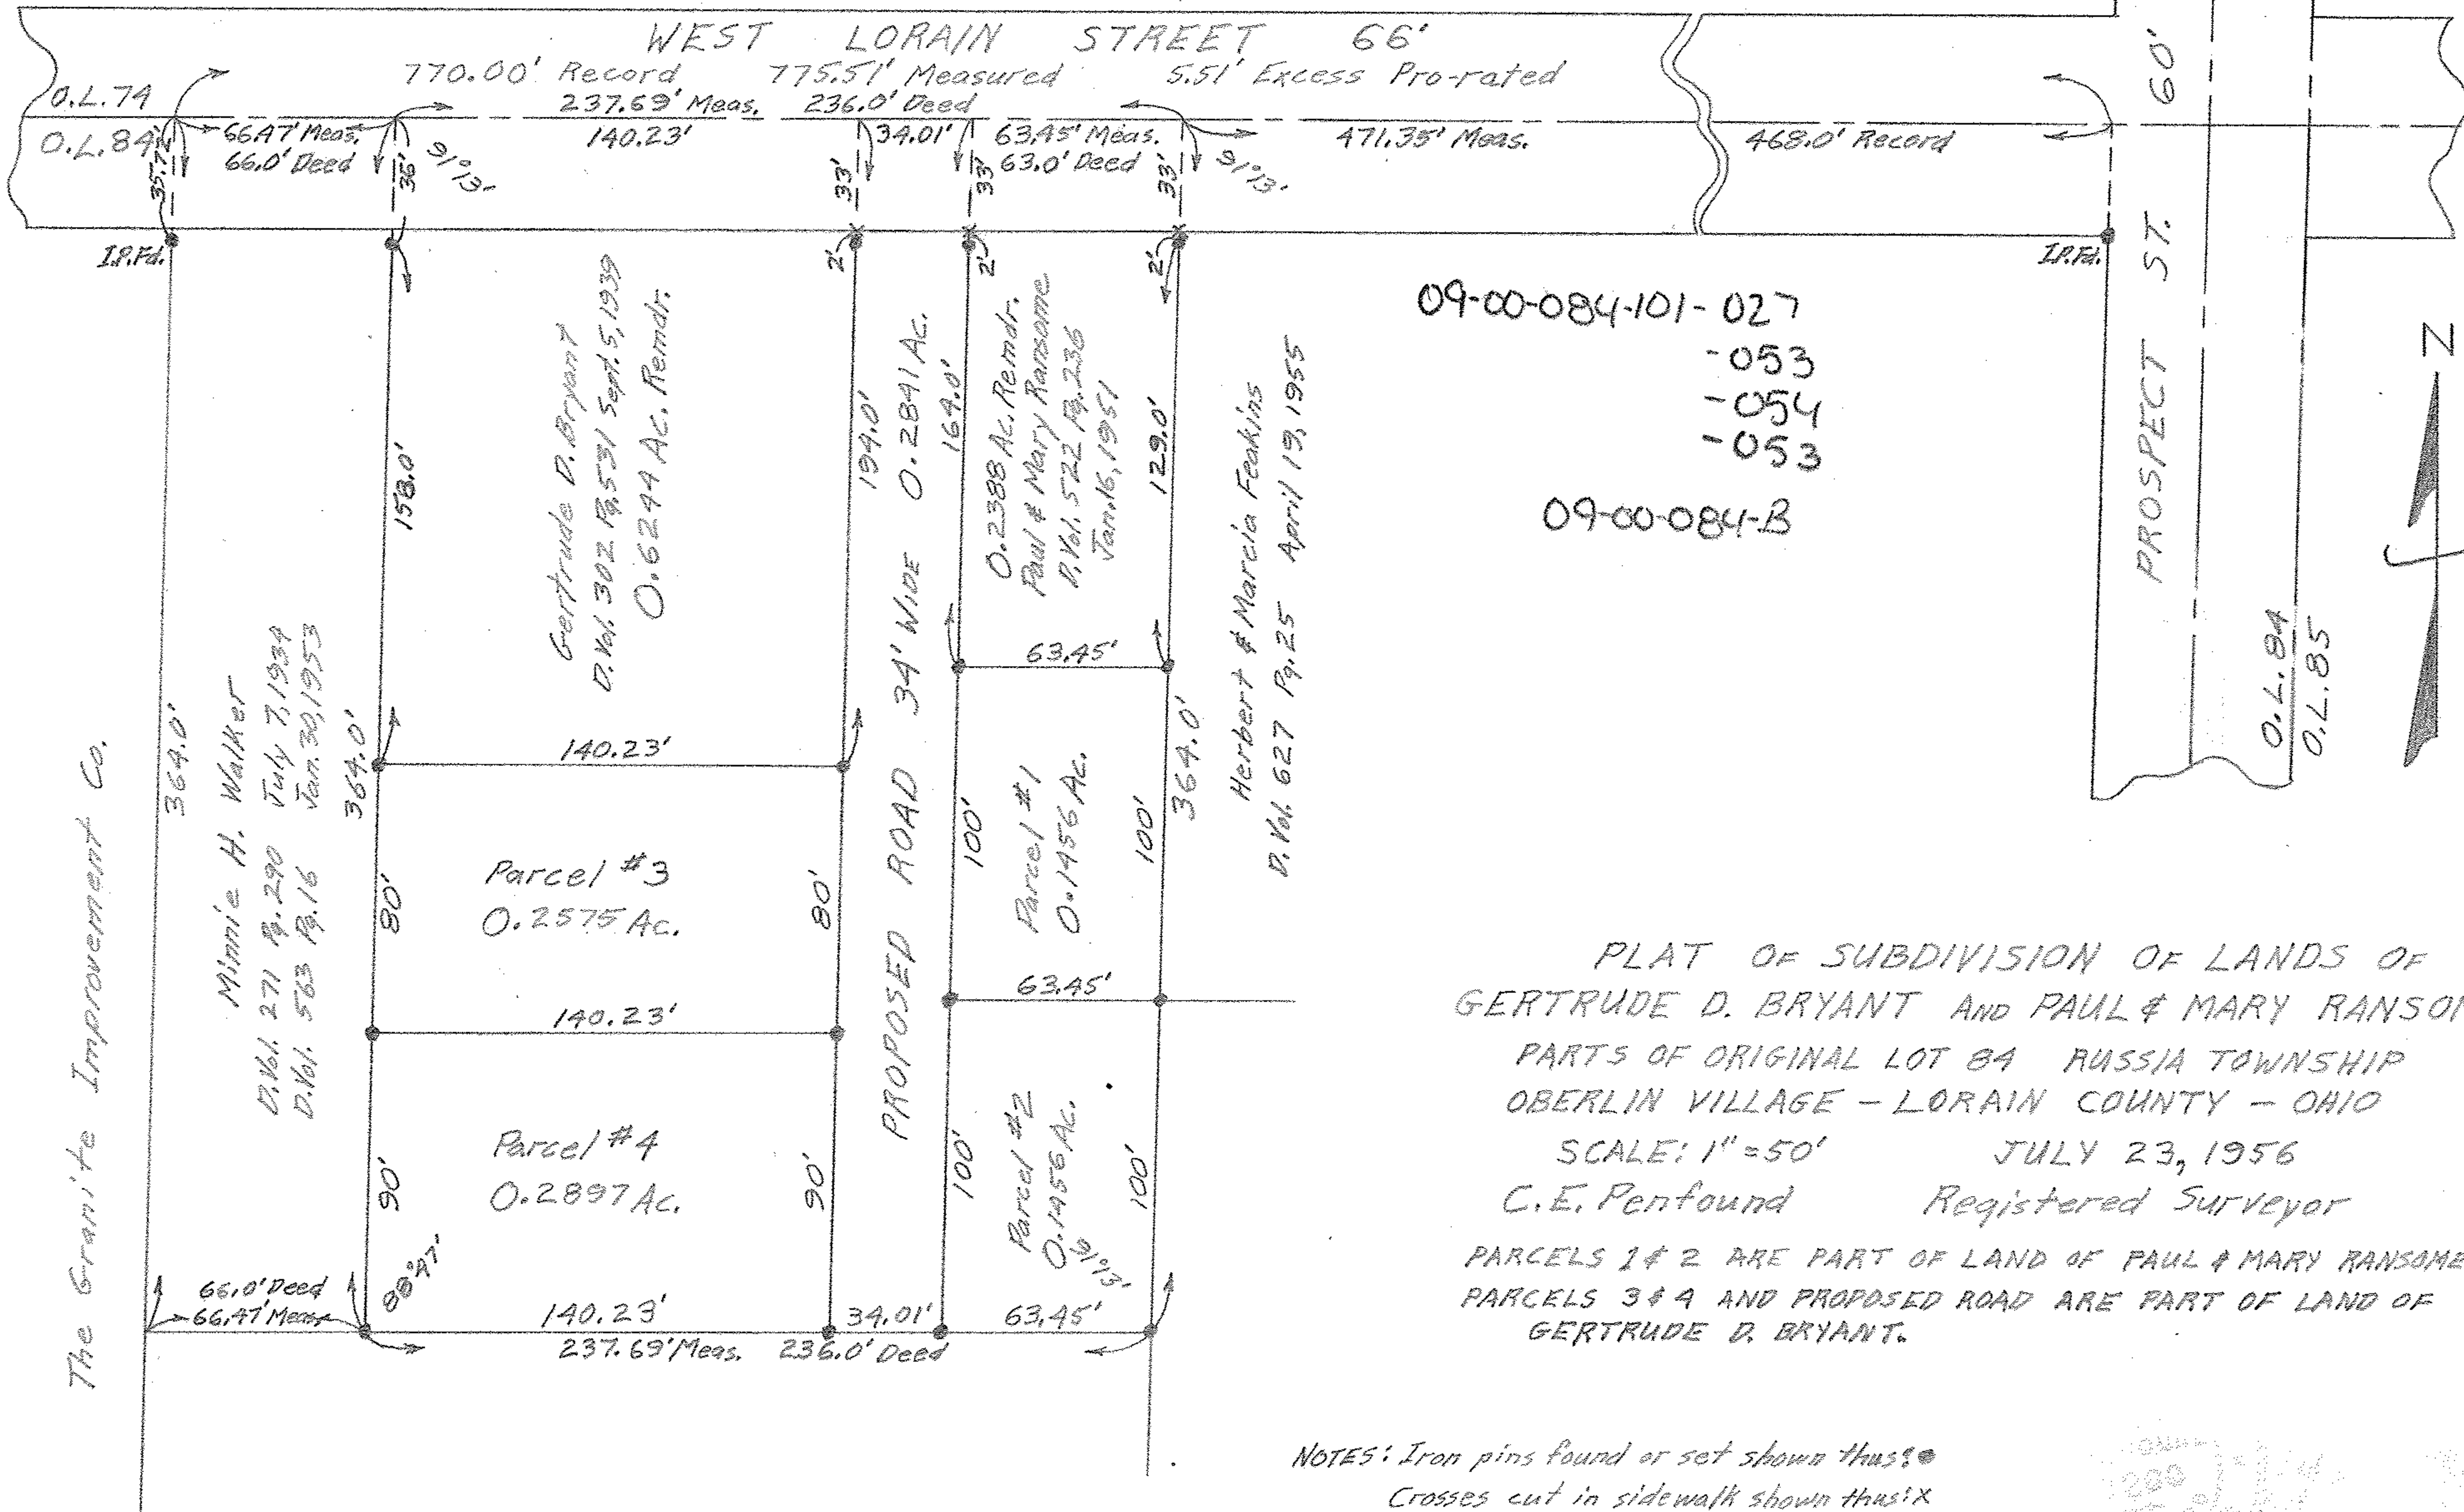 WEST LORAIN STREET 66'
770.00' Record 775.51' Measured 5.51' Excess Pro-rated
237.69' Meas. 236.0' Deed
O.L.74
O.L.84
66.47' Meas.
66.0' Deed
35.72'
36'
91°13'
140.23'
34.01'
63.45' Meas.
63.0' Deed
33'
33'
33'
91°13'
471.35' Meas.
468.0' Record
I.P.Fd.
2'
2'
2'
I.P.Fd.
PROSPECT ST. 60'
O.L.84
O.L.85
N
09-00-084-101-027
-053
-054
-053
09-00-084-B
The Granite Improvement Co.
364.0'
Minnie H. Walker
D.Vol. 271 Pg.290 July 7,1934
D.Vol. 563 Pg.16 Jan.30,1953
364.0'
158.0'
Gertrude D. Bryant
D.Vol. 302 Pg.531 Sept.5,1939
0.6244 Ac. Remdr.
194.0'
PROPOSED ROAD 34' WIDE 0.2841 Ac.
164.0'
0.2388 Ac. Remdr.
Paul & Mary Ransome
D.Vol. 522 Pg.236
Jan.16,1951
129.0'
Herbert & Marcia Feakins
D.Vol. 627 Pg.25 April 19,1955
63.45'
364.0'
140.23'
80'
Parcel #3
0.2575 Ac.
80'
100'
Parcel #1
0.1456 Ac.
100'
63.45'
140.23'
90'
Parcel #4
0.2897 Ac.
90'
100'
Parcel #2
0.1456 Ac.
100'
91°13'
88°47'
66.0' Deed
66.47' Meas.
140.23'
34.01'
63.45'
237.69' Meas. 236.0' Deed
PLAT OF SUBDIVISION OF LANDS OF
GERTRUDE D. BRYANT AND PAUL & MARY RANSOM
PARTS OF ORIGINAL LOT 84 RUSSIA TOWNSHIP
OBERLIN VILLAGE - LORAIN COUNTY - OHIO
SCALE: 1"=50' JULY 23, 1956
C.E. Penfound Registered Surveyor
PARCELS 1 & 2 ARE PART OF LAND OF PAUL & MARY RANSOME
PARCELS 3 & 4 AND PROPOSED ROAD ARE PART OF LAND OF
GERTRUDE D. BRYANT.
NOTES: Iron pins found or set shown thus: ●
Crosses cut in sidewalk shown thus: X